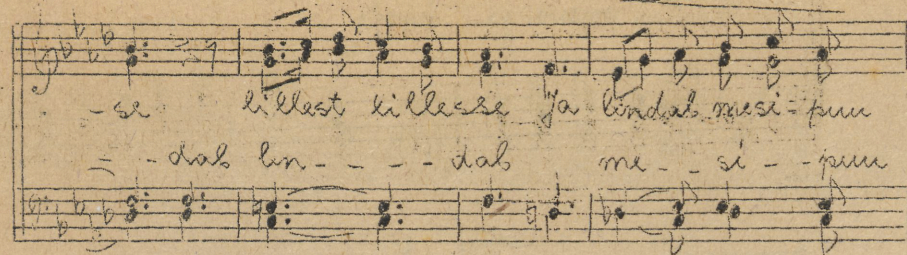 -se lillest lillesse ja lindab mesi-puu
- - dab lin- - - - - dab me - - si - - puu